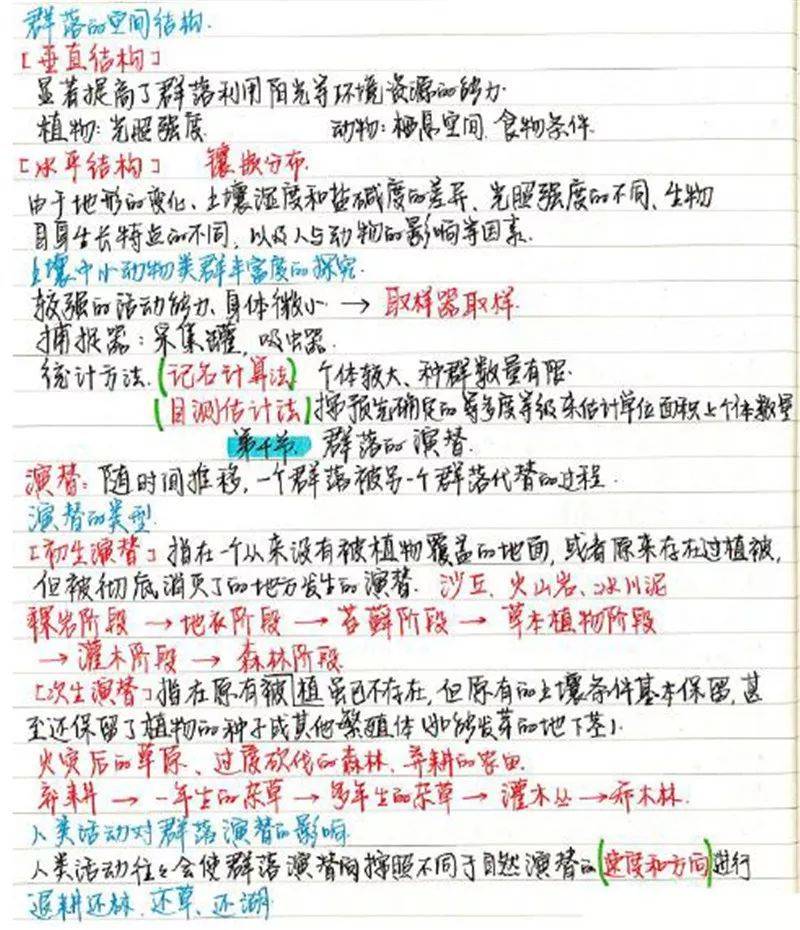 群落的空间结构.
[垂直结构]
显著提高了群落利用阳光等环境资源的能力.
植物:光照强度. 动物:栖息空间、食物条件.
[水平结构] 镶嵌分布.
由于地形的变化、土壤湿度和盐碱度的差异、光照强度的不同、生物
自身生长特点的不同,以及人与动物的影响等因素.
土壤中小动物类群丰富度的探究.
较强的活动能力、身体微小 → 取样器取样.
捕捉器:采集罐,吸虫器.
统计方法.(记名计算法) 个体较大、种群数量有限.
(目测估计法)按预先确定的多度等级来估计单位面积上个体数量
第4节. 群落的演替.
演替:随时间推移,一个群落被另一个群落代替的过程.
演替的类型.
[初生演替]指在一个从来没有被植物覆盖的地面,或者原来存在过植被,
但被彻底消灭了的地方发生的演替. 沙丘、火山岩、冰川泥
裸岩阶段 → 地衣阶段 → 苔藓阶段 → 草本植物阶段
→ 灌木阶段 → 森林阶段
[次生演替]指在原有被植虽已不存在,但原有的土壤条件基本保留,甚
至还保留了植物的种子或其他繁殖体(如能发芽的地下茎).
火灾后的草原、过度砍伐的森林、弃耕的农田.
弃耕 → 一年生的杂草 → 多年生的杂草 → 灌木丛 → 乔木林.
人类活动对群落演替的影响.
人类活动往往会使群落演替按照不同于自然演替的(速度和方向)进行
退耕还林、还草、还湖